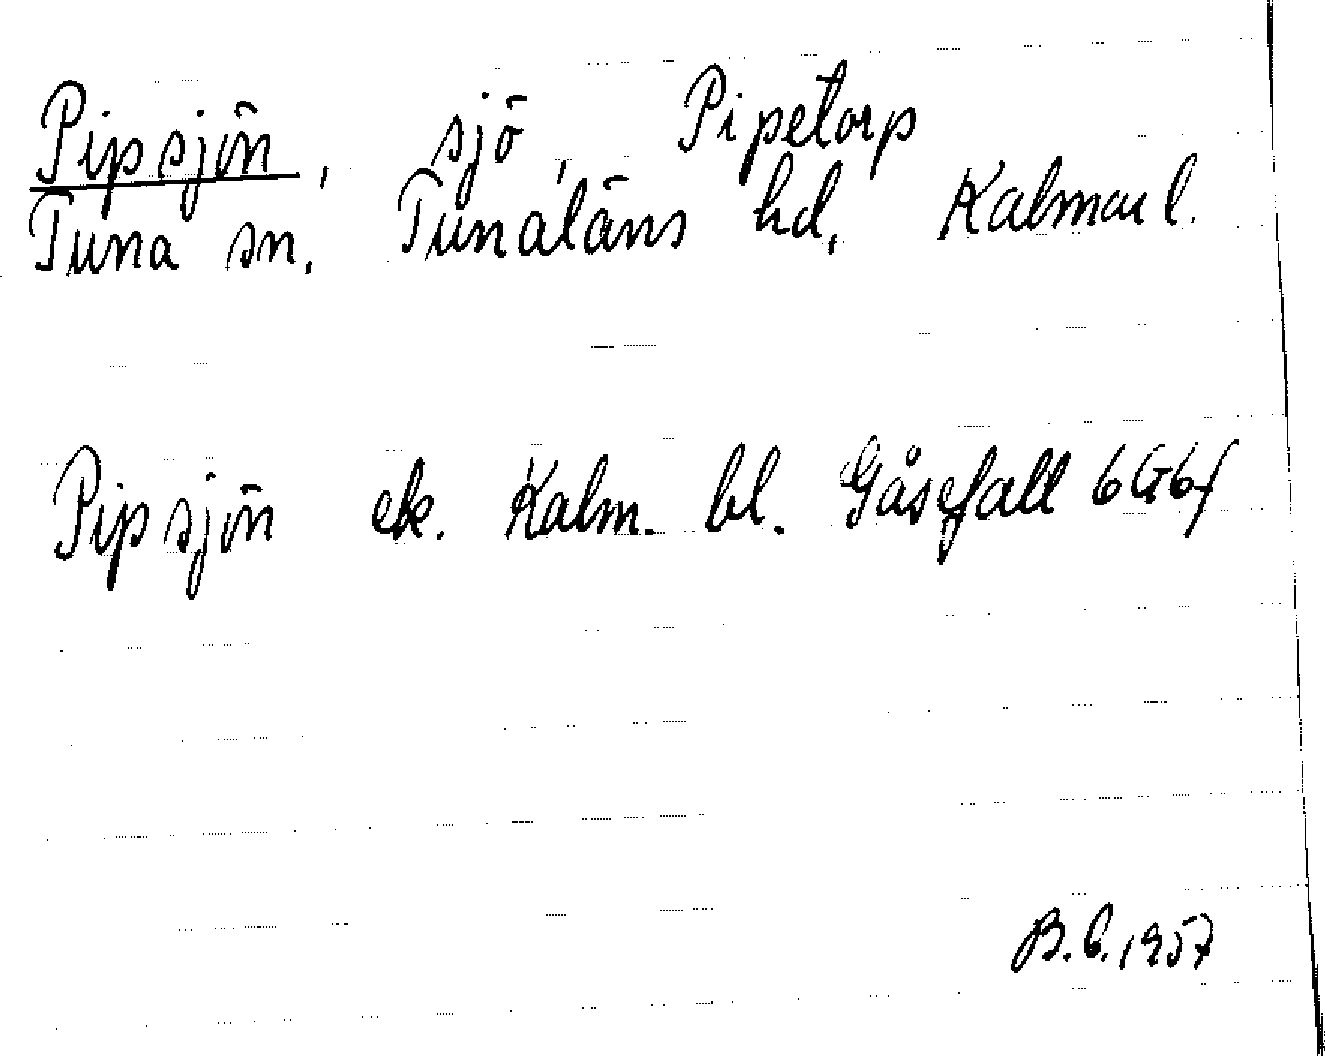 Pipsjön, sjö, Pipetorp
Tuna sn. Tunaläns hd, Kalmar l.
Pipsjön ek. Kalm. bl. Gåsefall 6G6f
B.C. 1957